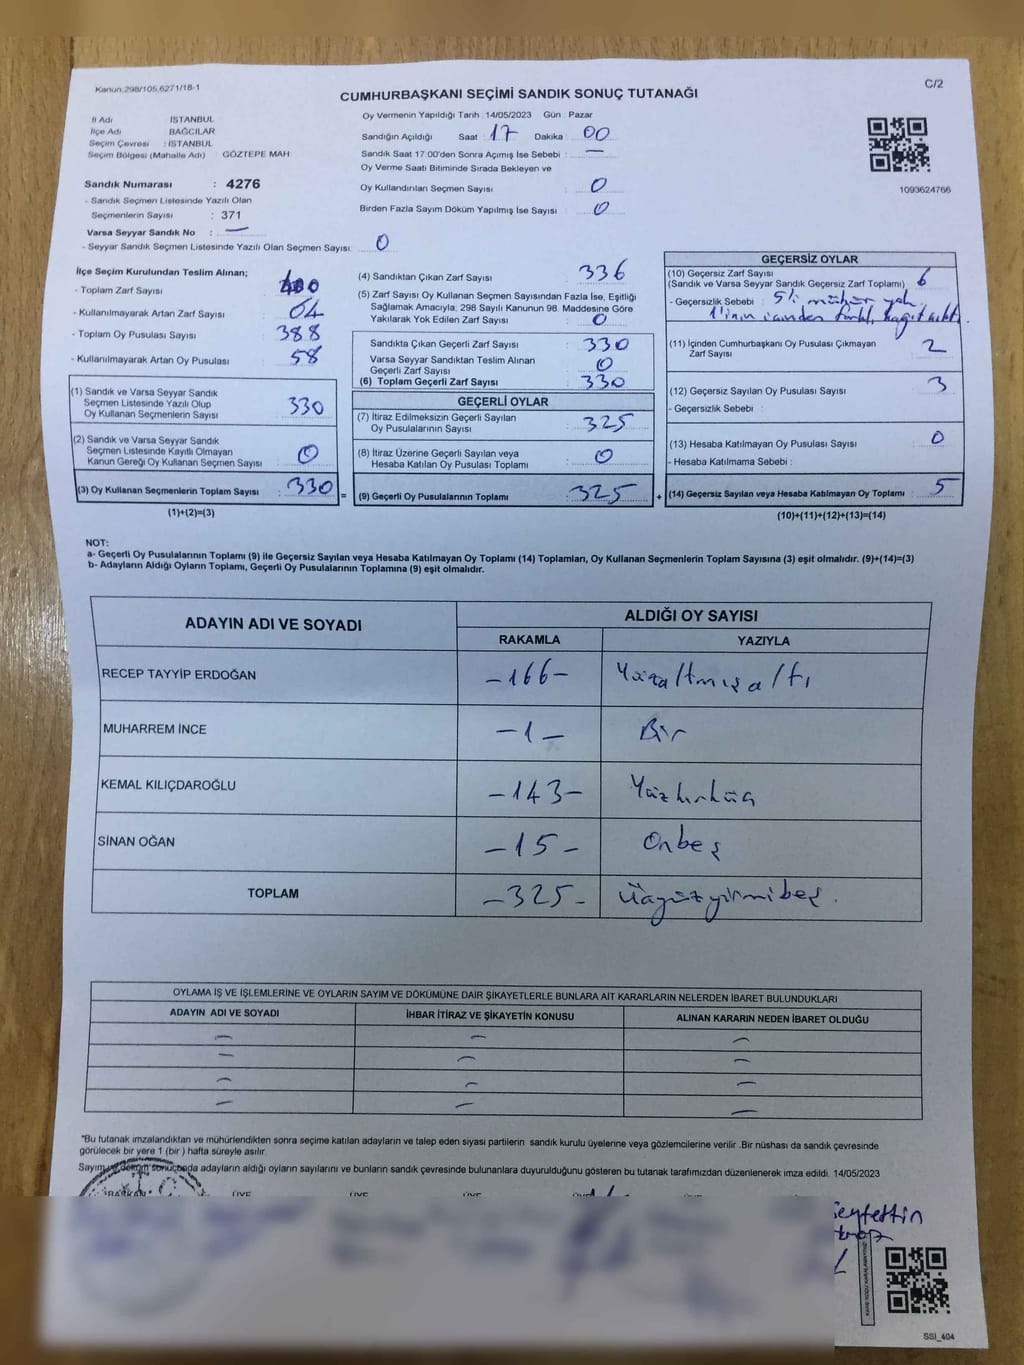 Kanun:298/105,6271/18-1
C/2
CUMHURBAŞKANI SEÇİMİ SANDIK SONUÇ TUTANAĞI
İl Adı : İSTANBUL
İlçe Adı : BAĞCILAR
Seçim Çevresi : İSTANBUL
Seçim Bölgesi (Mahalle Adı) GÖZTEPE MAH
Sandık Numarası : 4276
- Sandık Seçmen Listesinde Yazılı Olan
Seçmenlerin Sayısı : 371
Varsa Seyyar Sandık No : —
- Seyyar Sandık Seçmen Listesinde Yazılı Olan Seçmen Sayısı: 0
Oy Vermenin Yapıldığı Tarih 14/05/2023 Gün : Pazar
Sandığın Açıldığı Saat 17 Dakika 00
Sandık Saat 17:00'den Sonra Açımış İse Sebebi : —
Oy Verme Saati Bitiminde Sırada Bekleyen ve
Oy Kullandırılan Seçmen Sayısı : 0
Birden Fazla Sayım Döküm Yapılmış İse Sayısı : 0
1093624766
İlçe Seçim Kurulundan Teslim Alınan;
- Toplam Zarf Sayısı : 400
- Kullanılmayarak Artan Zarf Sayısı : 64
- Toplam Oy Pusulası Sayısı : 388
- Kullanılmayarak Artan Oy Pusulası : 58
(1) Sandık ve Varsa Seyyar Sandık
Seçmen Listesinde Yazılı Olup
Oy Kullanan Seçmenlerin Sayısı : 330
(2) Sandık ve Varsa Seyyar Sandık
Seçmen Listesinde Kayıtlı Olmayan
Kanun Gereği Oy Kullanan Seçmen Sayısı : 0
(3) Oy Kullanan Seçmenlerin Toplam Sayısı : 330
(1)+(2)=(3)
(4) Sandıktan Çıkan Zarf Sayısı : 336
(5) Zarf Sayısı Oy Kullanan Seçmen Sayısından Fazla İse, Eşitliği
Sağlamak Amacıyla; 298 Sayılı Kanunun 98. Maddesine Göre
Yakılarak Yok Edilen Zarf Sayısı : 0
Sandıkta Çıkan Geçerli Zarf Sayısı : 330
Varsa Seyyar Sandıktan Teslim Alınan
Geçerli Zarf Sayısı : 0
(6) Toplam Geçerli Zarf Sayısı : 330
GEÇERLİ OYLAR
(7) İtiraz Edilmeksizin Geçerli Sayılan
Oy Pusulalarının Sayısı : 325
(8) İtiraz Üzerine Geçerli Sayılan veya
Hesaba Katılan Oy Pusulası Toplamı : 0
= (9) Geçerli Oy Pusulalarının Toplamı : 325
GEÇERSİZ OYLAR
(10) Geçersiz Zarf Sayısı
(Sandık ve Varsa Seyyar Sandık Geçersiz Zarf Toplamı) : 6
- Geçersizlik Sebebi : 5'i mühür yok
1'inin içinden farklı kağıt çıktı.
(11) İçinden Cumhurbaşkanı Oy Pusulası Çıkmayan
Zarf Sayısı : 2
(12) Geçersiz Sayılan Oy Pusulası Sayısı : 3
- Geçersizlik Sebebi :
(13) Hesaba Katılmayan Oy Pusulası Sayısı : 0
- Hesaba Katılmama Sebebi :
+ (14) Geçersiz Sayılan veya Hesaba Katılmayan Oy Toplamı : 5
(10)+(11)+(12)+(13)=(14)
NOT:
a- Geçerli Oy Pusulalarının Toplamı (9) ile Geçersiz Sayılan veya Hesaba Katılmayan Oy Toplamı (14) Toplamları, Oy Kullanan Seçmenlerin Toplam Sayısına (3) eşit olmalıdır. (9)+(14)=(3)
b- Adayların Aldığı Oyların Toplamı, Geçerli Oy Pusulalarının Toplamına (9) eşit olmalıdır.
ADAYIN ADI VE SOYADI
ALDIĞI OY SAYISI
RAKAMLA YAZIYLA
RECEP TAYYİP ERDOĞAN -166- Yüzaltmışaltı
MUHARREM İNCE -1- Bir
KEMAL KILIÇDAROĞLU -143- Yüzkırküç
SİNAN OĞAN -15- Onbeş
TOPLAM -325- Üçyüzyirmibeş.
OYLAMA İŞ VE İŞLEMLERİNE VE OYLARIN SAYIM VE DÖKÜMÜNE DAİR ŞİKAYETLERLE BUNLARA AİT KARARLARIN NELERDEN İBARET BULUNDUKLARI
ADAYIN ADI VE SOYADI İHBAR İTİRAZ VE ŞİKAYETİN KONUSU ALINAN KARARIN NEDEN İBARET OLDUĞU
— — —
— — —
— — —
— — —
*Bu tutanak imzalandıktan ve mühürlendikten sonra seçime katılan adayların ve talep eden siyasi partilerin sandık kurulu üyelerine veya gözlemcilerine verilir .Bir nüshası da sandık çevresinde
görülecek bir yere 1 (bir ) hafta süreyle asılır.
Sayım ve döküm sonucunda adayların aldığı oyların sayılarını ve bunların sandık çevresinde bulunanlara duyurulduğunu gösteren bu tutanak tarafımızdan düzenlenerek imza edildi. 14/05/2023
BAŞKAN ÜYE ÜYE ÜYE
Seyfettin
SSI_404